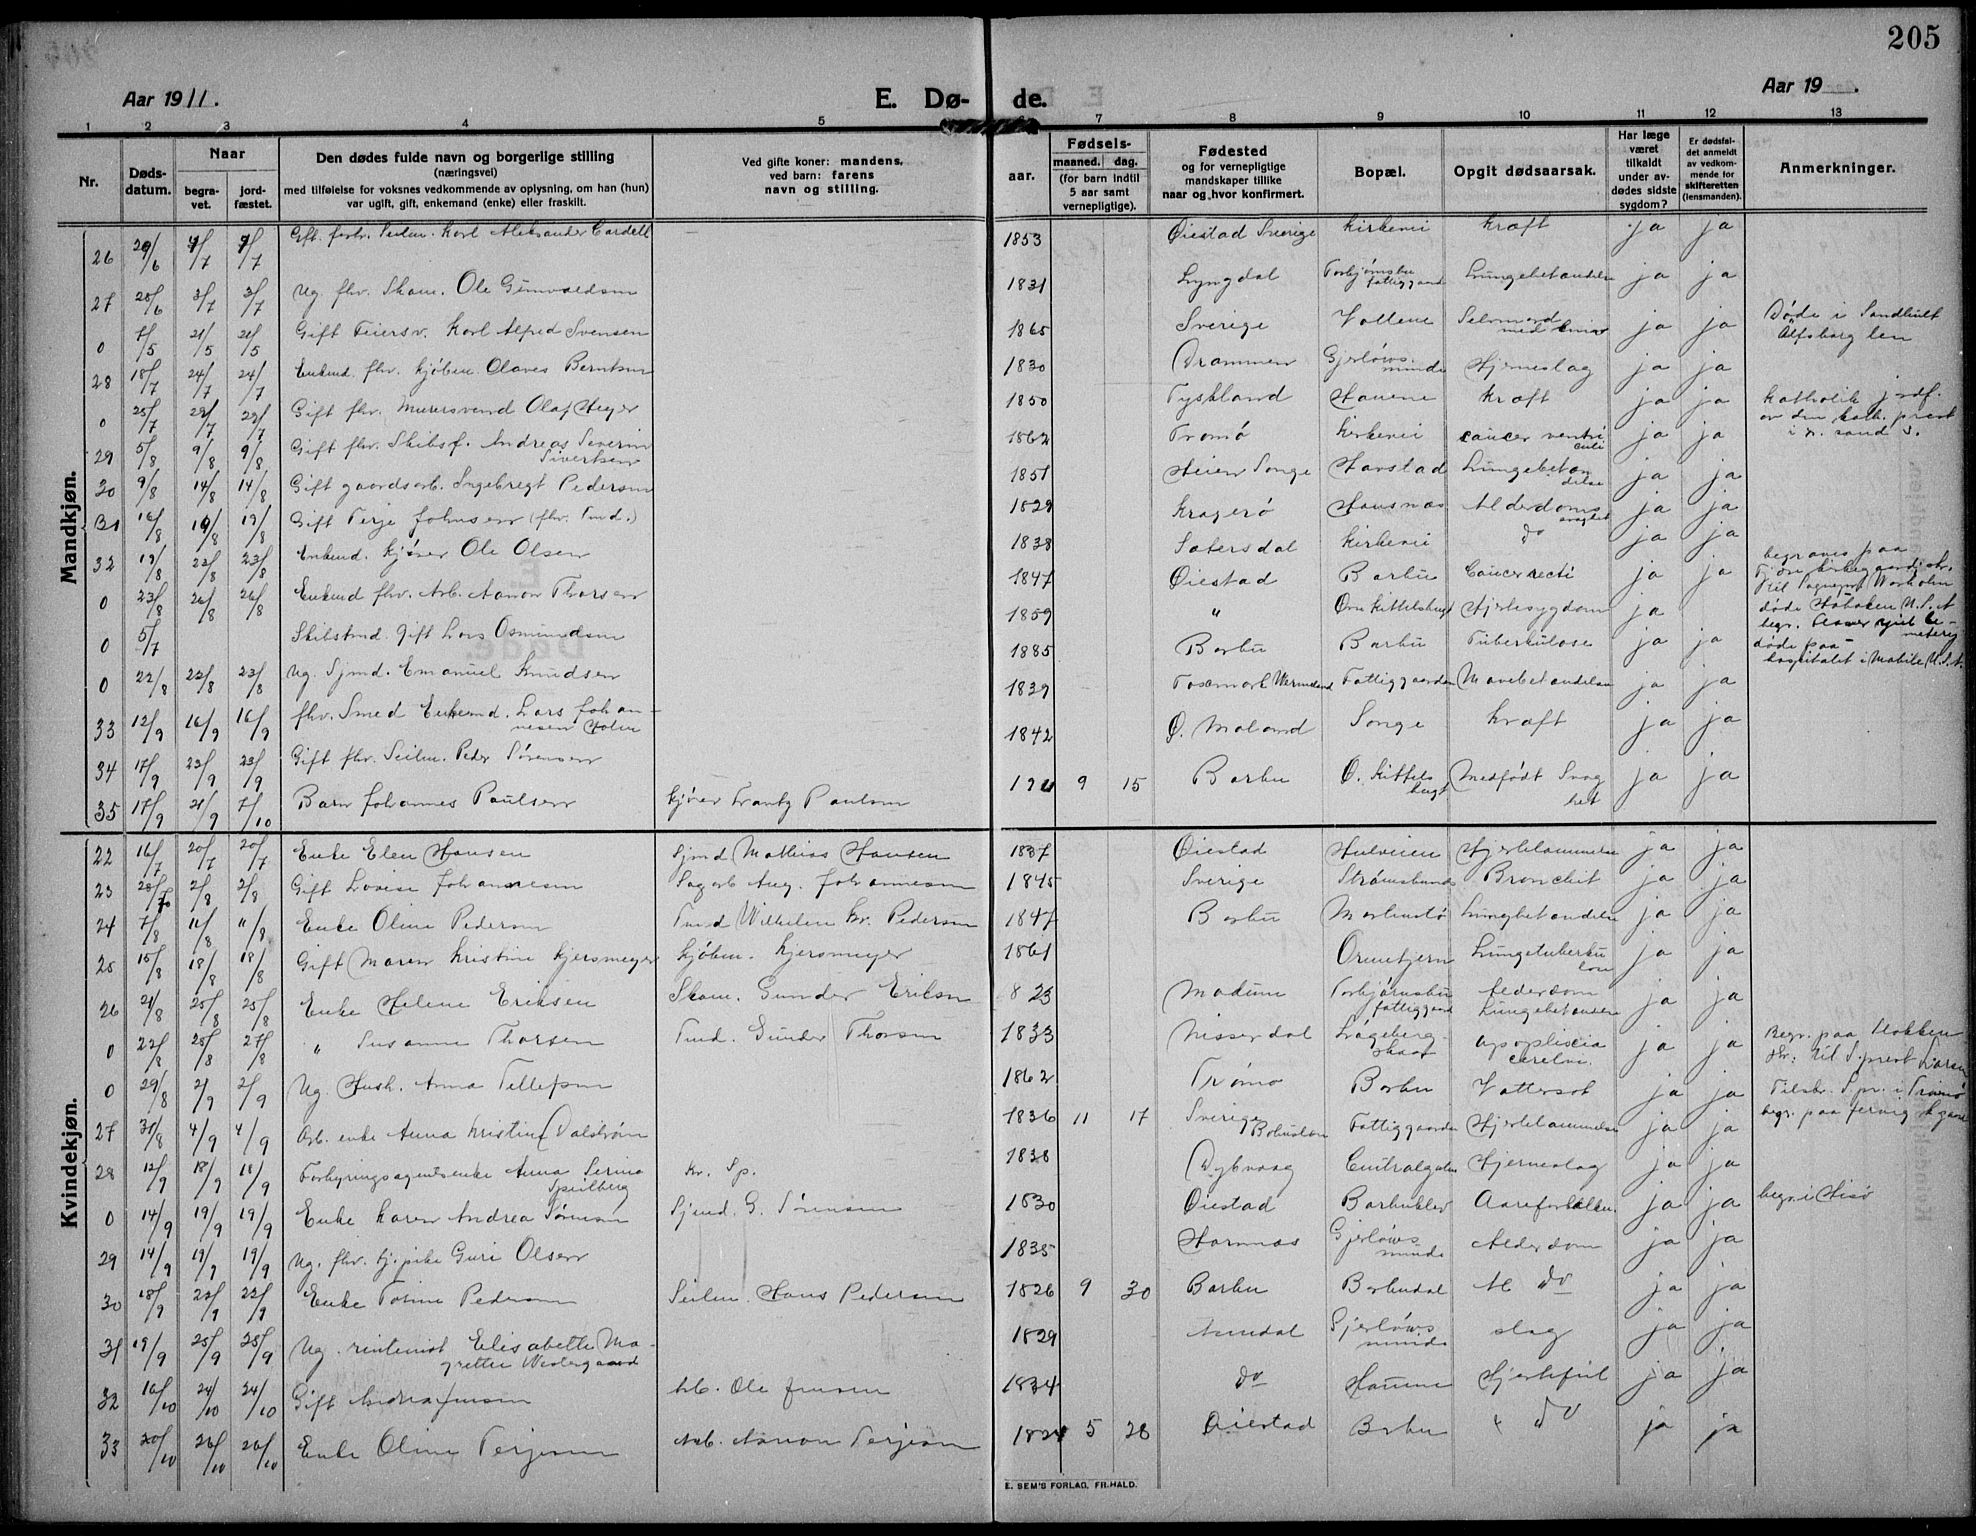 205
Aar 1911.
E. Dø- de.
Aar 19 .
1 2 3 4 5 7 8 9 10 11 12 13
Nr.
Døds-
datum.
Naar
begra-
vet.
jord-
fæstet.
Den dødes fulde navn og borgerlige stilling
(næringsvei)
med tilføielse for voksnes vedkommende av oplysning, om han (hun)
var ugift, gift, enkemand (enke) eller fraskilt.
Ved gifte koner: mandens,
ved barn: farens
navn og stilling.
Fødsels-
aar.
maaned. dag.
(for barn indtil
5 aar samt
vernepligtige).
Fødested
og for vernepligtige
mandskaper tillike
naar og hvor konfirmert.
Bopæl.
Opgit dødsaarsak.
Har læge
været
tilkaldt
under av-
dødes sidste
sygdom?
Er dødsfal-
det anmeldt
av vedkom-
mende for
skifteretten
(lensmanden).
Anmerkninger.
Mandkjøn.
26 29/6 4/7 4/7 Gift. forh. Seilm. Karl Aleksander Cardell 1853 Øiestad Sverige Kirkevei Kræft ja ja
27 28/6 3/7 3/7 Ug. fhv. Skom. Ole Gunvaldsen 1831 Lyngdal Torbjørnsbu fattiggaard Lungebetændelse ja ja
0 7/5 21/5 21/5 Gift Feiersv. Karl Alfred Svensen 1865 Sverige Vollene Selvmord med kniv ja ja Døde i Sandhult Elfsborg len
28 18/7 24/7 24/7 Enkmd. fhv. kjøbm. Olaves Berntsen 1830 Drammen Gjerløws minde Hjerneslag ja ja
0 25/7 29/7 29/7 Gift fhv. Murersvend Olaf Heyer 1850 Tyskland Hauene Kræft ja ja Katholik jordf. av den kath. prest i Kr. sand S.
29 5/8 9/8 9/8 Gift fhv. Skibsf. Andreas Severin Sivertsen 1862 Tromø Kirkevei cancer ventriculi ja ja
30 9/8 14/8 14/8 Gift gaardsarb. Ingebregt Pedersen 1851 Heien Songe Havstad Lungebetændelse ja ja
31 16/8 19/8 19/8 Gift Terje Johnsen (fhv. Tmd.) 1829 Kragerø Hausnæs Alderdoms svaghet ja ja
32 19/8 23/8 23/8 Enkmd. kjører Ole Olsen 1838 Sætersdal Kirkevei do ja ja
0 23/8 26/8 26/8 Enkmd fhv. Arb. Aanon Thorsen 1847 Øiestad Barbu Cancer recti ja ja begraves paa Fjære kirkegaard
0 5/7 Skibstmd. Gift Lars Osmundsen 1859 " Øvre Kittelsbugt Hjertesygdom ja døde Hoboken U.S.A
0 22/8 22/8 23/8 Ug. Sjmd. Emanuel Knudsen 1885 Barbu Barbu Tuberkulose ja ja døde paa hospitalet i Mobile U.S.A.
33 12/9 16/9 16/9 fhv. Smed Enkemd. Lars Johannesen Holm 1839 Fosemark Wermland Fattiggaarden Mavebetændelse ja ja
34 17/9 23/9 23/9 Gift fhv. Seilm. Peder Sørensen 1842 Ø. Moland Songe Kræft ja ja
35 17/9 21/9 7/10 Barn Johannes Paulsen kjører Frantz Paulsen 9 15 Barbu Ø. Kittels bugt Medfødt Svag het ja ja
Kvindekjøn.
22 16/7 20/7 20/7 Enke Elen Hansen Sjmd Mathias Hansen 1837 Øiestad Hulveien Hjertelammelse ja ja
23 28/7 2/8 2/8 Gift Lovise Johannesen Sagarb Aug. Johannesen 1845 Sverige Strømsbunes Bronchit ja ja
24 7/8 11/8 11/8 Enke Oline Pedersen Tmd Wilhelm Kr. Pedersen 1847 Barbu Marbustø Lungebetændelse ja ja
25 15/8 18/8 18/8 Gift Maren Kristine Kjersmeyer Kjøbm. Kjersmeyer 1861 Orretjern Lungetuberku lose ja ja
26 21/8 25/8 25/8 Enke Helene Eriksen Skom. Gunder Eriksen 823 Modum Torbjørnsbu fattiggaard Alderdom Lungebetændelse ja ja
0 22/8 25/8 27/8 " Susanne Thorsen Tmd. Gunder Thorsen 1833 Nisserdal Lågeberg apoplexia cerebri. ja ja Begr. paa Flokken
0 29/8 2/9 2/9 Ug. Hush. Anna Tellefsen 1862 Tromø Barbu Vattersot ja ja Tilskr. S.pr. i Tromø
27 31/8 4/9 4/9 Arb. enke Anna Kristine Dalstrøm 1836 11 17 Sverige Bohuslen Fattiggaarden Hjertelammelse ja ja
28 12/9 18/9 18/9 Forhyringsagentsenke Anna Serine Speilberg Kr. Sp. 1838 Dybvaag Centralgaten Hjerneslag ja ja
0 14/9 19/9 19/9 Enke Karen Andrea Sørensen Sjmd. G. Sørensen 1830 Øiestad Barbuklev Aareforkalkn. ja ja begr. i Hisø
29 14/9 19/9 19/9 Ug. fhv. tj. pike Guri Olsen 1835 Hornnæs Gjerløws minde Alderdom ja ja
30 18/9 22/9 22/9 Enke Torine Pedersen Seilm. Hans Pedersen 1826 9 30 Barbu Barbudal Al do ja ja
31 19/9 25/9 25/9 Ug. rentenist Elisabette Ma- grette Westergaard 1829 Arendal Gjerløws minde slag ja ja
32 16/10 24/10 24/10 Gift Andrea Jensen Arb. Ole Jensen 1834 do Hauene Hjertefeil ja ja
33 20/10 26/10 26/10 Enke Oline Terjesen Arb. Aanon Terjesen 5 28 Øiestad Barbu " do ja ja
E. SEM'S FORLAG, FR.HALD.